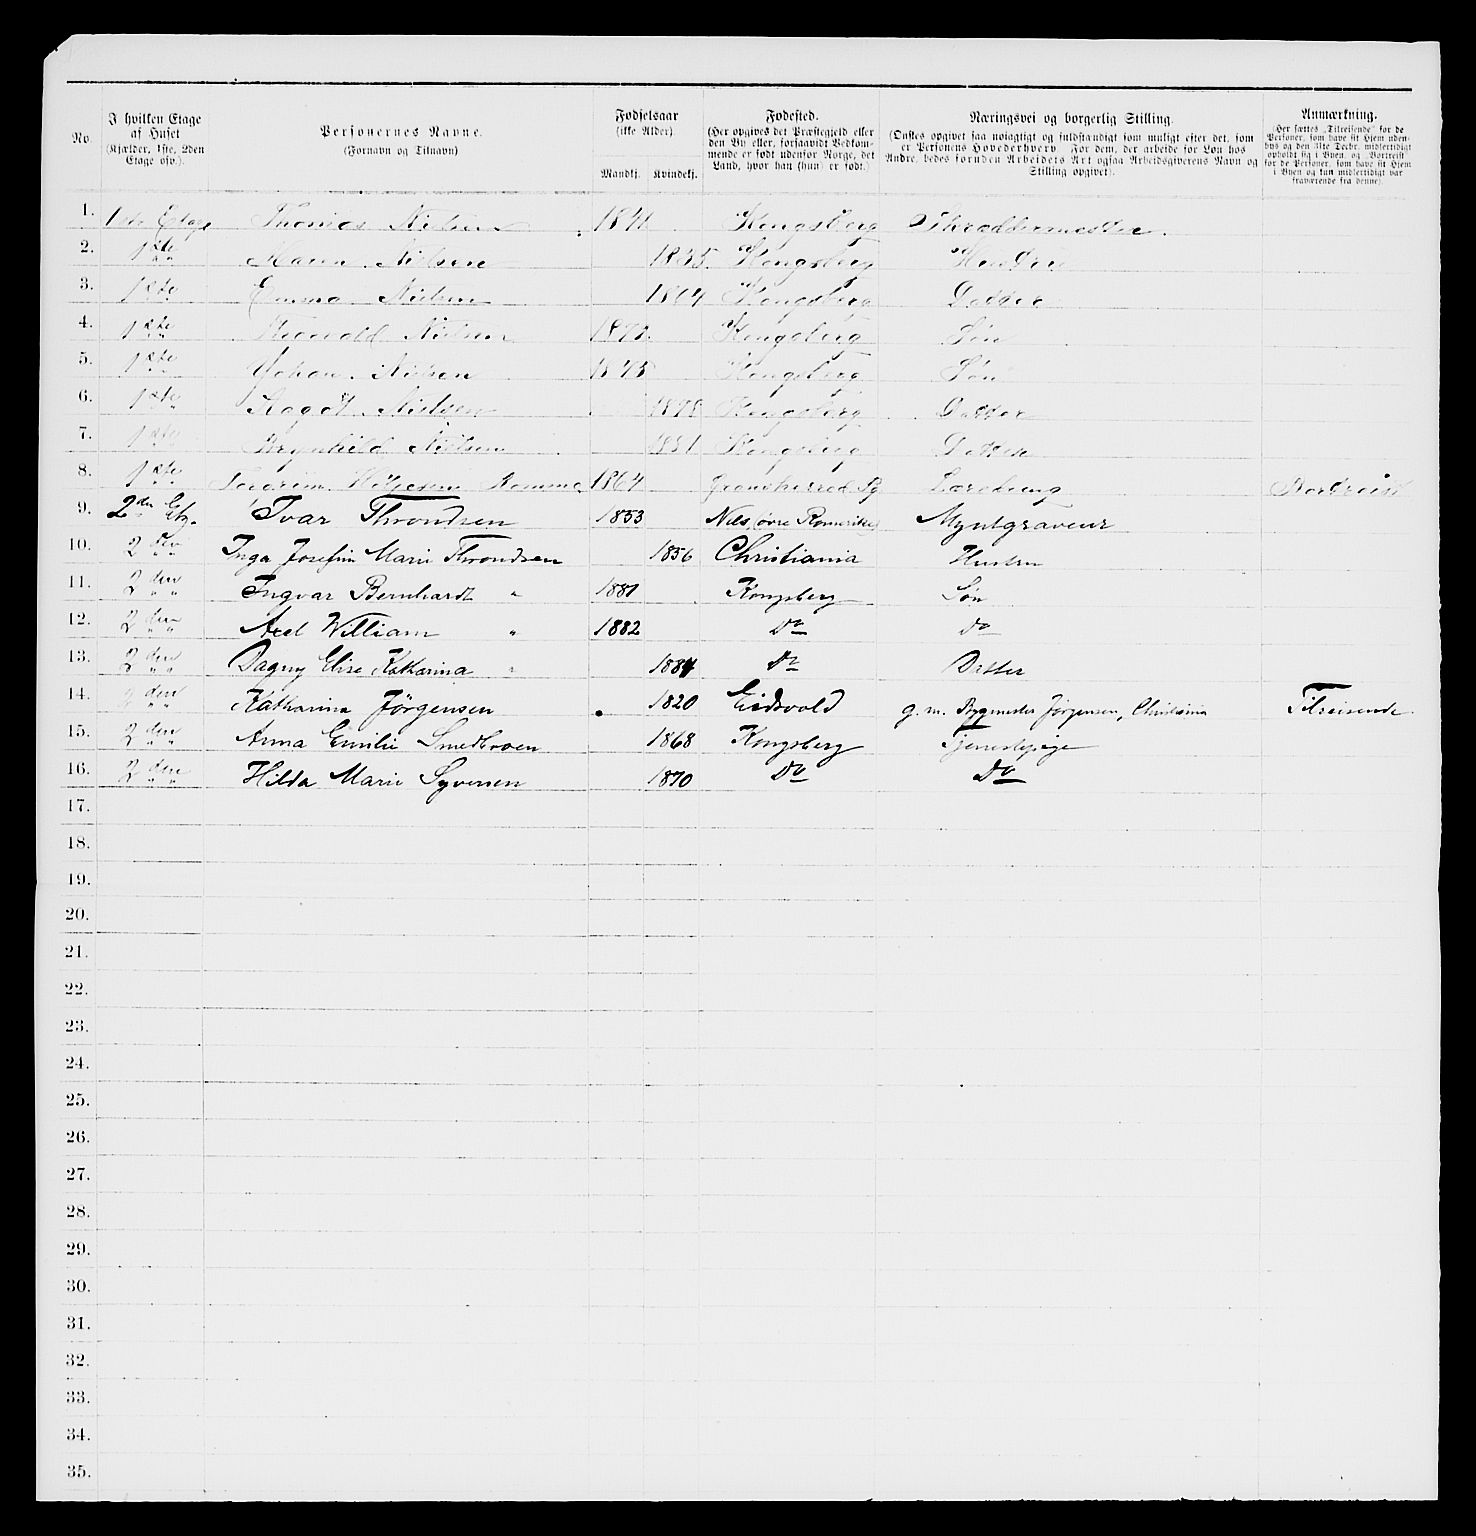 No. | I hvilken Etage af Huset (Kjælder, 1ste, 2den Etage osv.). | Personernes Navne. (Fornavn og Tilnavn) | Fødselsaar (ikke Alder). Mandkj. | Kvindekj. | Fødested. (Her opgives det Præstegjeld eller den By eller, forsaavidt Vedkommende er født udenfor Norge, det Land, hvor han (hun) er født.) | Næringsvei og borgerlig Stilling. (Ønskes opgivet saa nøiagtigt og fuldstændigt som muligt efter det, som er Personens Hovederhverv. For dem, der arbeide for Løn hos Andre, bedes foruden Arbeidets Art ogsaa Arbeidsgiverens Navn og Stilling opgivet). | Anmærkning. (Her sættes „Tilreisende" for de Personer, som have sit Hjem udenbys og den 31te Decbr. midlertidigt opholdt sig i Byen, og „Bortreist" for de Personer, som have sit Hjem i Byen og kun midlertidigt var fraværende fra denne).
1. 1ste Etage Thomas Nielsen 1841 Kongsberg Skræddermester.
2. 1ste Maren Nielsen 1835. Kongsberg Hustru
3. 1ste Emma Nielsen Kongsberg Datter
4. 1ste Nielsen Kongsberg Søn
5. 1ste Johan Nielsen 1875 Kongsberg Søn
6. 1ste Aagot Nielsen 1878 Kongsberg Datter
7. 1ste Brynhild Nielsen 1881 Kongsberg Datter
8. 1ste 1864 Gransherred Pg Bortreist
9. 2den Etg. Ivar Throndsen 1853 Næs, (øvre Romerike) Myntgraveur
10. 2den Inga Josefin Marie Throndsen 1856 Christiania Hustru
11. 2den Ingvar Bernhardt " 1881 Kongsberg Søn
12. 2den Axel William " 1882 Do Do
13. 2den Dagny Elise Katharina " 1884 Do Datter
14. 2den Katharina Jørgensen 1820 Eidsvold g. m. Bygmester Jørgensen, Christiania Tilreisende
15. 2den Anna Emilie 1868 Kongsberg Tjenestepige
16. 2den Hilda Marie Syversen 1870 Do Do
17.
18.
19.
20.
21.
22.
23.
24.
25.
26.
27.
28.
29.
30.
31.
32.
33.
34.
35.